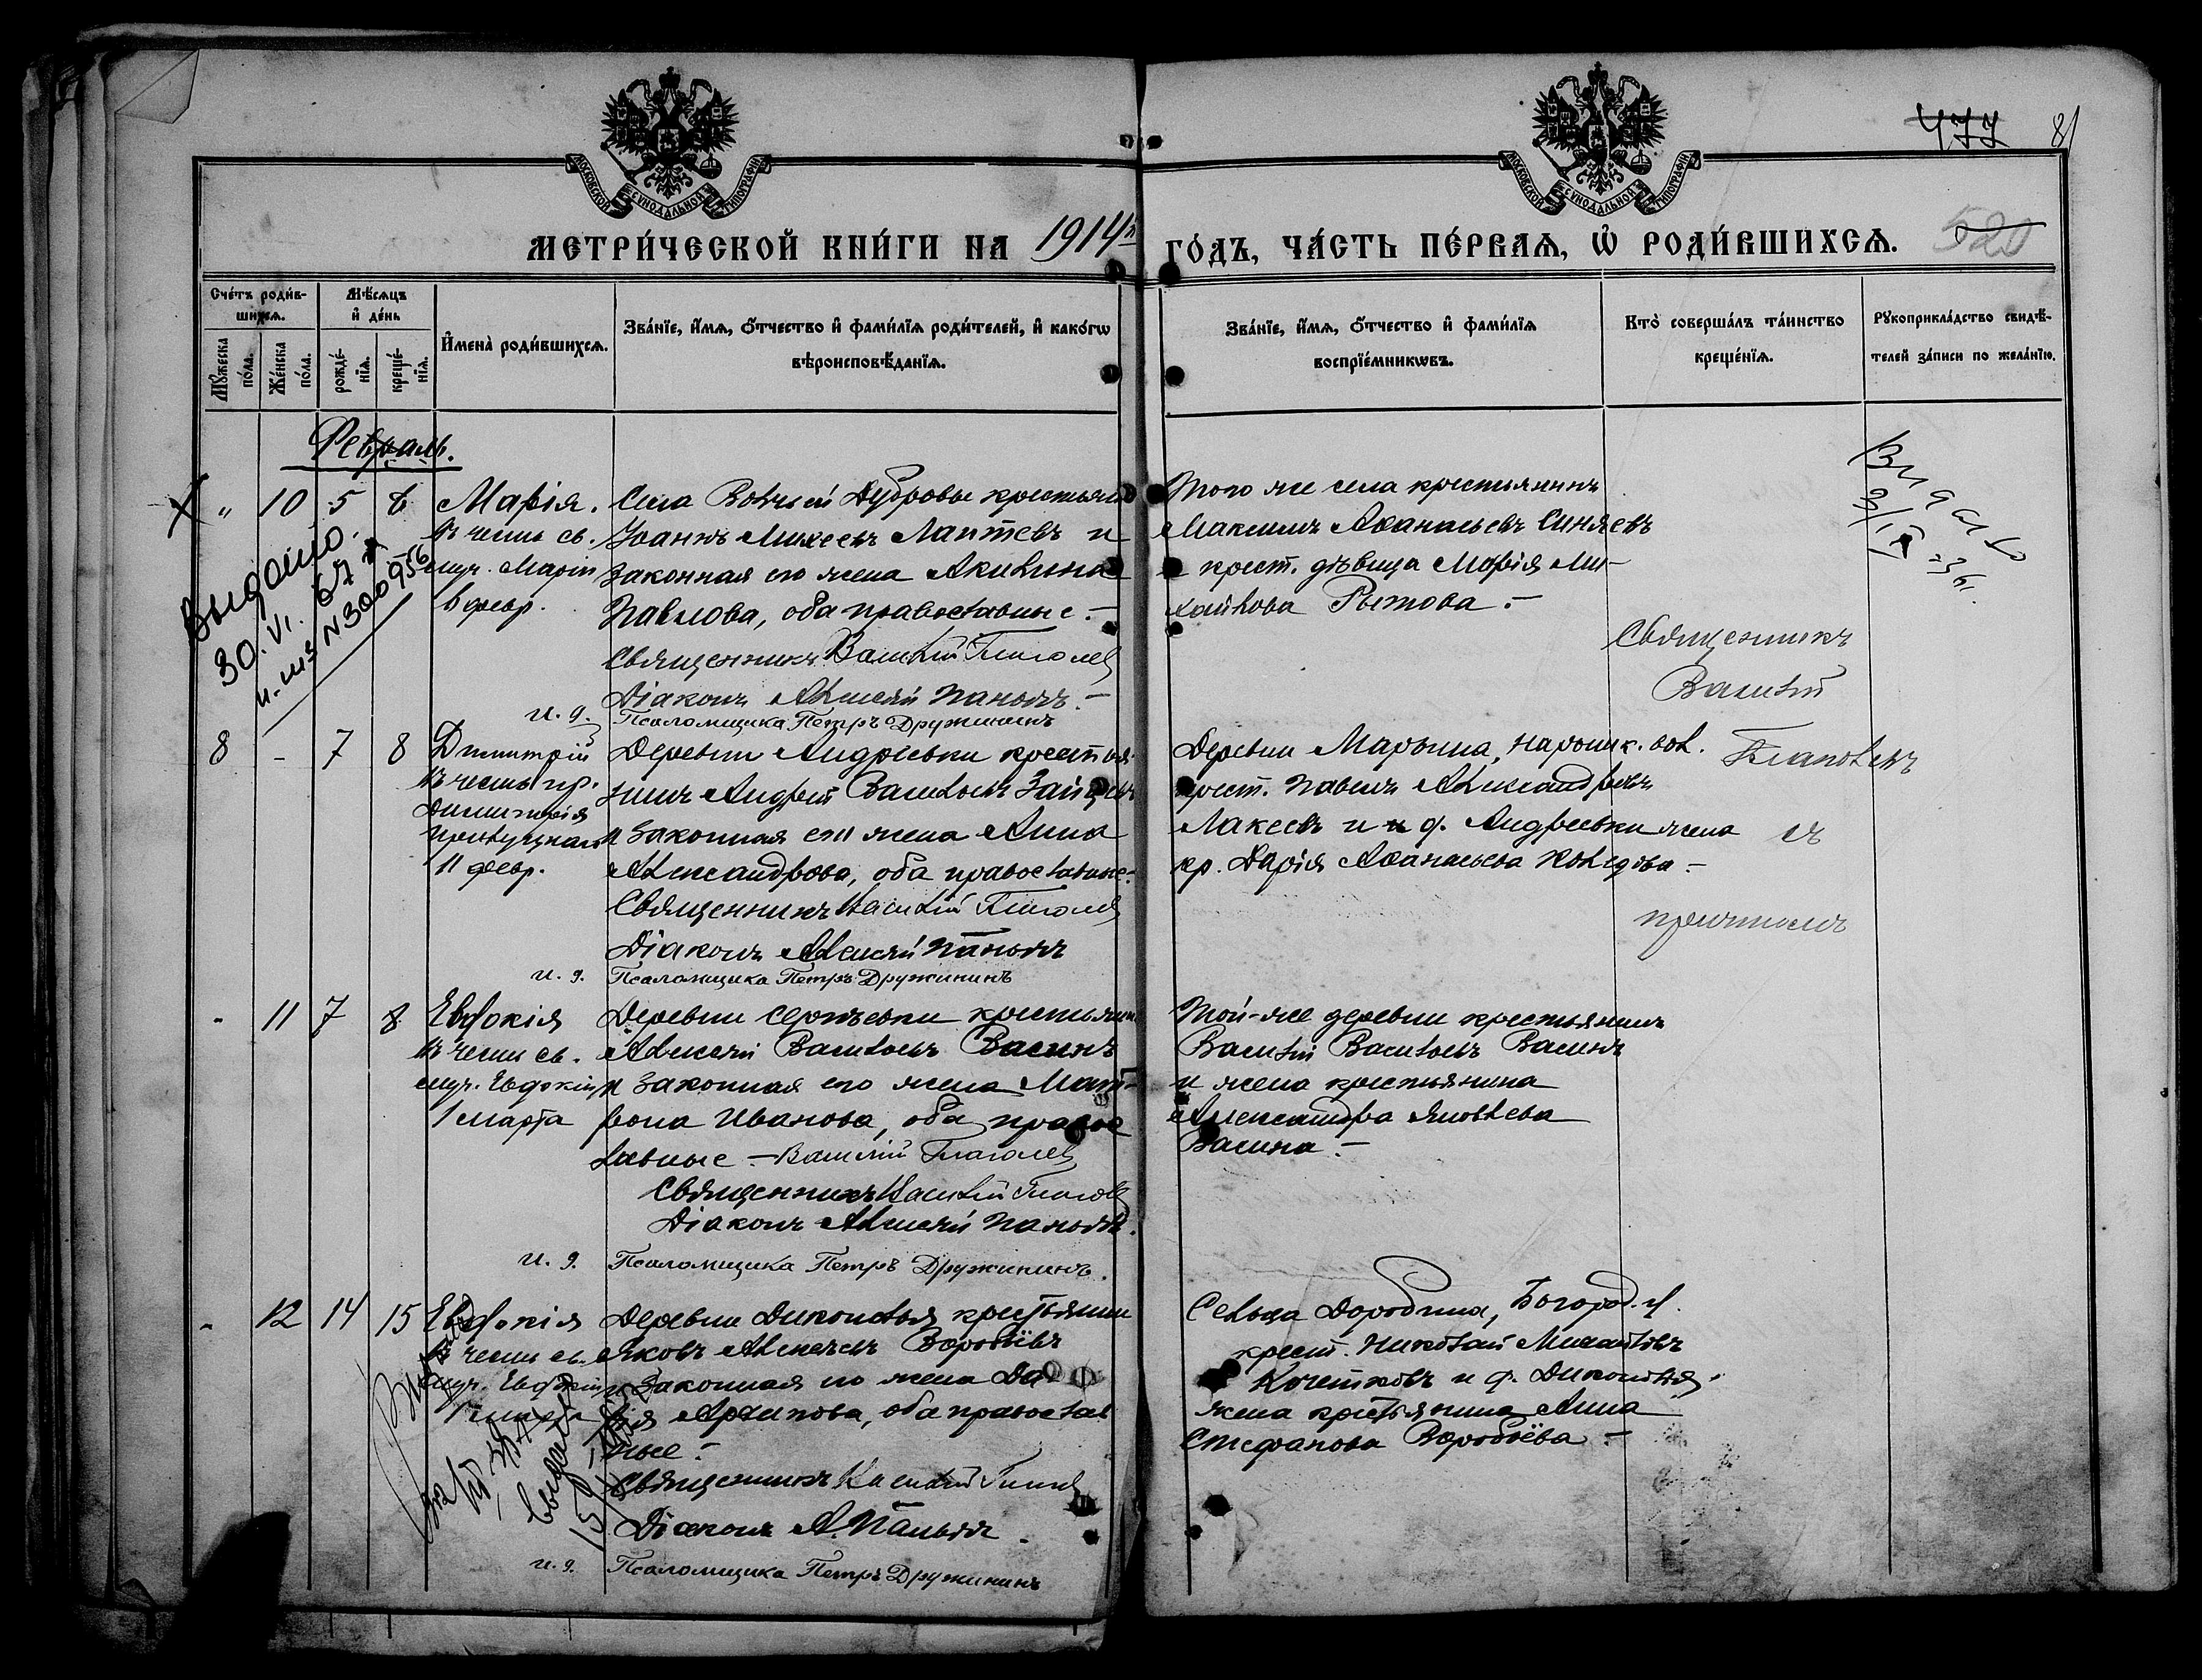 477 81
МОСКОВСКОЙ СѴНОДАЛЬНОЙ ТИПОГРАФІИ
МОСКОВСКОЙ СѴНОДАЛЬНОЙ ТИПОГРАФІИ
МЕТРИ́ЧЕСКОЙ КНИ́ГИ НА 1914й ГО́ДЪ, ЧА́СТЬ ПЕ́РВАѦ, Ѡ҆ РОДИ́ВШИХСѦ. 520
Сче́тъ роди́в-
шихсѧ.
Мꙋ́жеска
по́ла.
Же́нска
по́ла.
Мѣ́сѧцъ
и҆ де́нь
рожде́-
нїѧ.
креще́-
нїѧ.
И҆мена̀ роди́вшихсѧ.
Зва́нїе, и҆́мѧ, ѻ҆́тчество и҆ фами́лїѧ роди́телей, и҆ како́гѡ
вѣроисповѣ́данїѧ.
Зва́нїе, и҆́мѧ, ѻ҆́тчество и҆ фами́лїѧ
воспрїе́мникѡвъ.
Кто̀ соверша́лъ та́инство
креще́нїѧ.
Рꙋкоприкла́дство свидѣ́-
телей за́писи по жела́нїю.
Февраль.
" 10 5 6 Марія.
въ честь св.
муч. Маріи
6 февр.
Села Дубровы крестьянинъ
Іоаннъ Михеевъ Лаптевъ и
законная его жена Акилина
Павлова, оба православные.-
Священникъ Василій Глаголев
Діаконъ Алексѣй
и. д. Псаломщика Петръ Дружининъ
Того же села крестьянинъ
Максимъ Аѳанасьевъ Синяевъ
и крест. дѣвица Марія Ми-
хайлова Рытова.-
Выдано.
30.VI.67
N300956
Священникъ
Василій
Глаголевъ
съ
причтомъ
8 - 7 8 Димитрій
въ честь пр.
Димитрія
Прилуцкаго
11 февр.
Деревни Андреевки крестья-
нинъ Андрей Васильевъ Зайцевъ
и законная его жена Анна
Александрова, оба православные.-
Священникъ Василій Глаголев
Діаконъ Алексѣй
и. д. Псаломщика Петръ Дружининъ
Деревни Марьина, вол.
крест. Павелъ Александровъ
Макеевъ и д. Андреевки жена
кр. Дарія Аѳанасьева -
- 11 7 8 Евдокія
въ честь св.
муч. Евдокіи
1 марта
Деревни Сергѣевки крестьянинъ
Алексѣй Васильевъ Васинъ
и законная его жена Мат-
рона Иванова, оба правос
лавные.- Василій Глаголев
Священникъ Василій Глаголев
Діаконъ Алексѣй
и. д. Псаломщика Петръ Дружининъ.
Той-же деревни крестьянинъ
Василій Васильевъ Васинъ
и жена крестьянина
Александра Яковлева
Васина.-
- 12 14 15 Евдокія
въ честь св.
муч. Евдокіи
1 марта
Деревни крестьянинъ
Яковъ Алексѣевъ Воробьёвъ
и законная его жена Да-
рія Архипова, оба православ
ные.-
Священникъ Василій
Діаконъ А.
и. д. Псаломщика Петръ Дружининъ
Сельца Дородина, Богород. у.
крест. Николай Михайловъ
Кочетковъ и д.
жена крестьянина Анна
Стефанова Воробьёва -